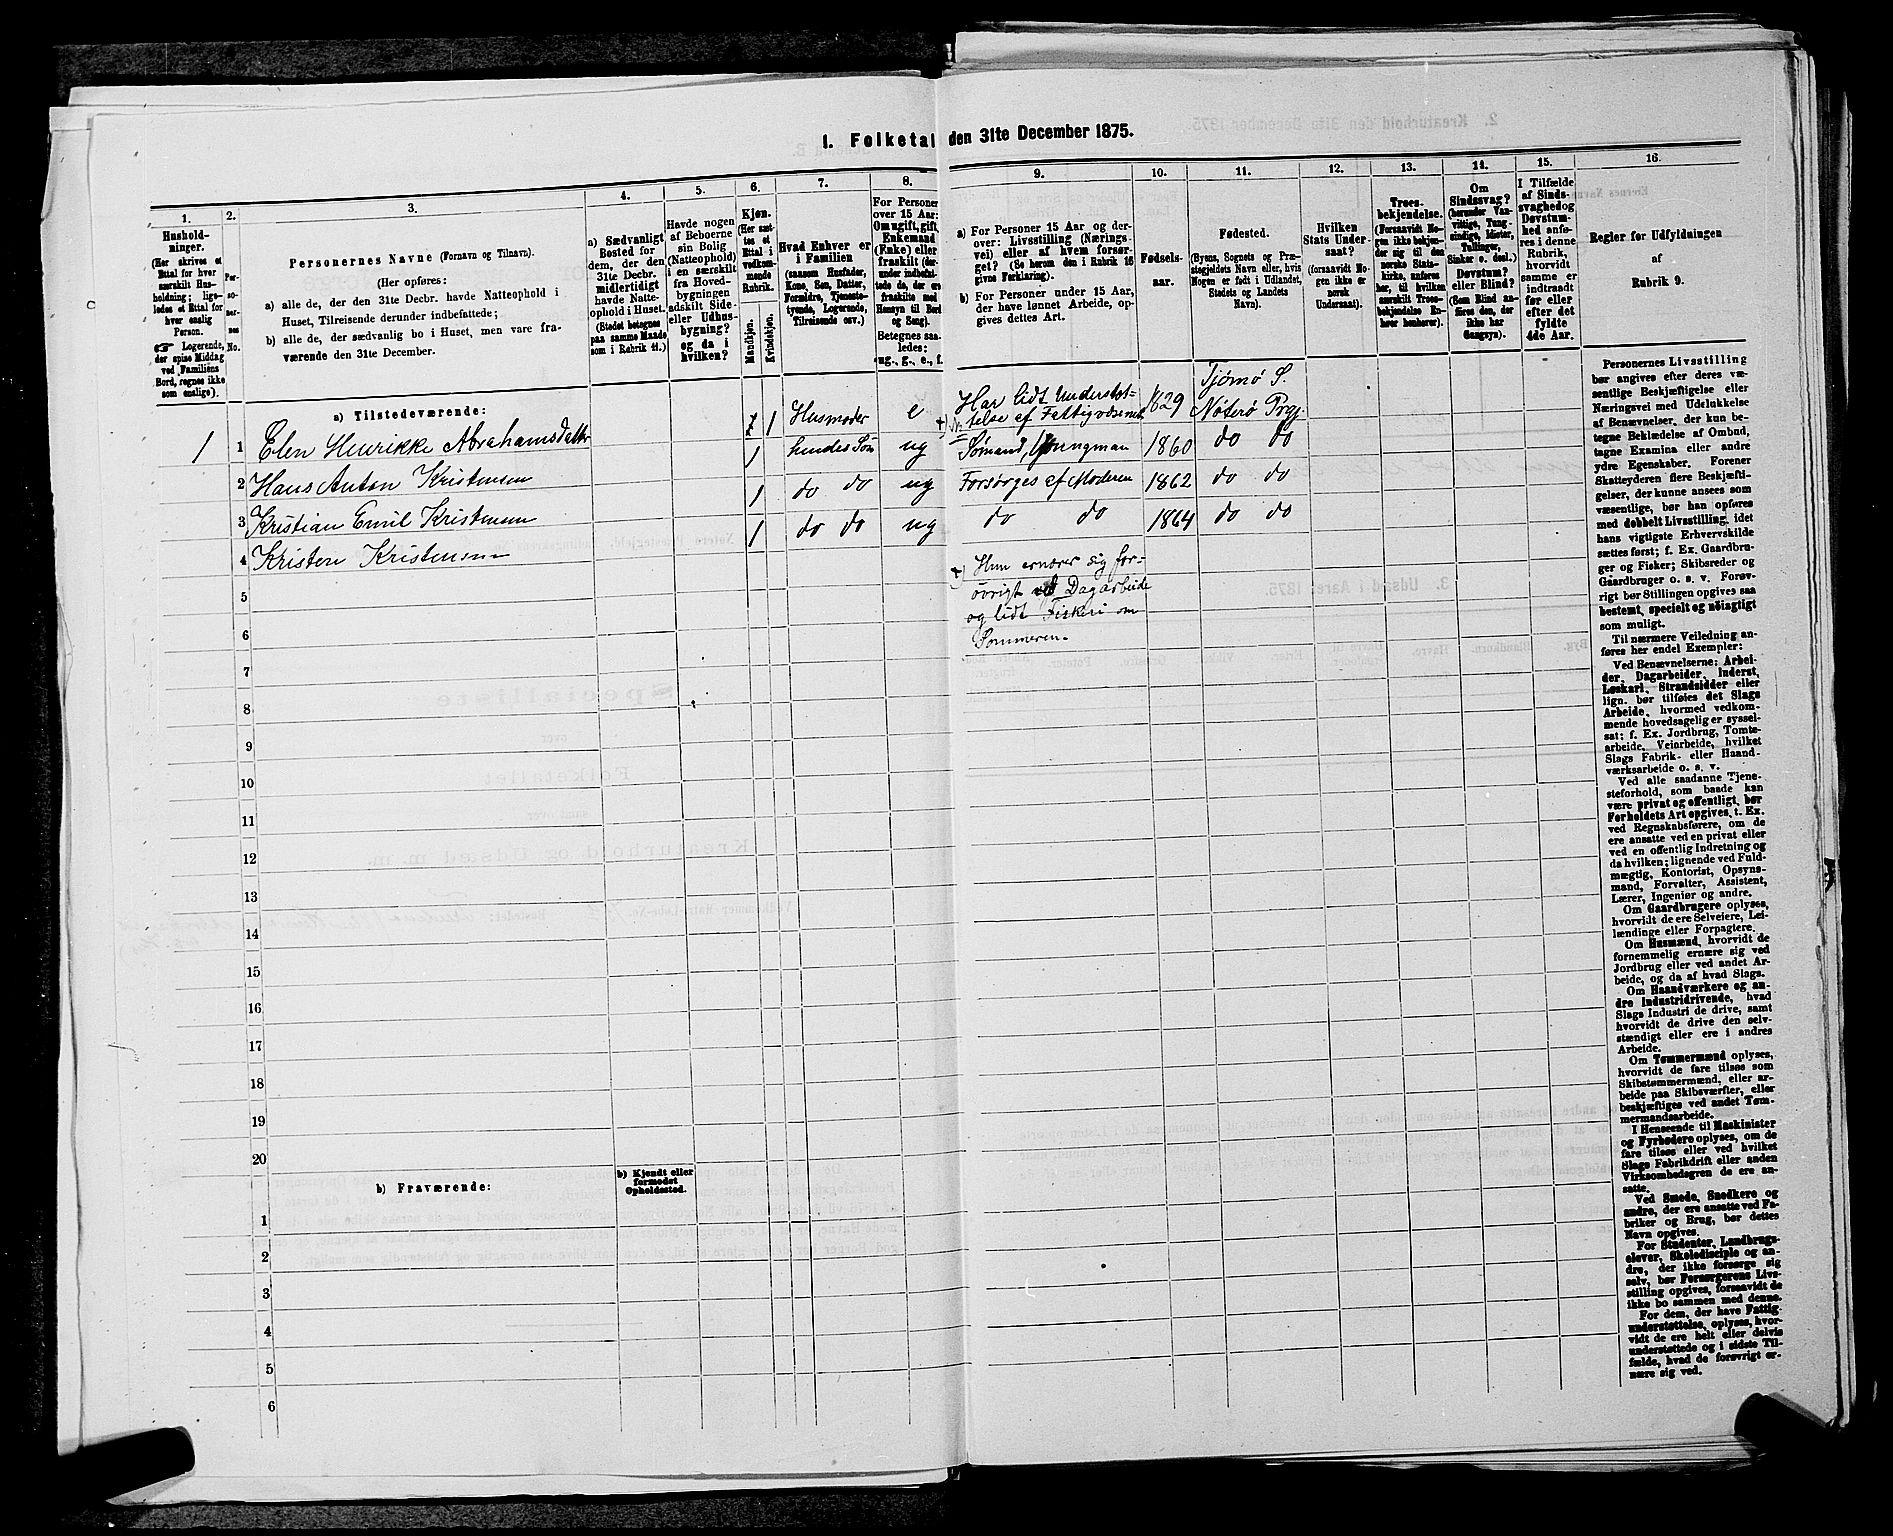 I. Folketal den 31te December 1875.
1. 2. 3. 4. 5. 6. 7. 8. 9. 10. 11. 12. 13. 14. 15. 16.
Hushold-
ninger.
(Her skrives et
Ettal for hver
særskilt Hus-
holdning; lige-
ledes et Ettal for
hver enslig
Person.
Logerende,
der spise Middag
ved Familiens
Bord, regnes ikke
som enslige).
Per-
so-
ner-
nes
No.
Personernes Navne (Fornavn og Tilnavn).
(Her opføres:
a) alle de, der den 31te Decbr. havde Natteophold i
Huset, Tilreisende derunder indbefattede;
b) alle de, der sædvanlig bo i Huset, men vare fra-
værende den 31te December.
a) Sædvanligt
Bosted for
dem, der den
31te Decbr.
midlertidigt
havde Natte-
ophold i Huset.
(Stedet betegnes
paa samme Maade
som i Rubrik 11.)
Havde nogen
af Beboerne
sin Bolig
(Natteophold)
i en særskilt
fra Hoved-
bygningen
adskilt Side-
eller Udhus-
bygning?
og da i
hvilken?
Kjøn.
(Her sæt-
tes et
Ettal i
vedkom-
mende
Rubrik.
Mandkjøn.
Kvindekjøn.
Hvad Enhver er
i Familien
(saasom Husfader,
Kone, Søn, Datter,
Forældre, Tjeneste-
tyende, Logerende,
Tilreisende osv.)
For Personer
over 15 Aar:
Om ugift, gift,
Enkemand
(Enke) eller
fraskilt (der-
under indbefat-
tede de, der ere
fraskilte med
Hensyn til Bord
og Seng).
Betegnes saa-
ledes:
ug., g., e., f.
a) For Personer 15 Aar og der-
over: Livsstilling (Nærings-
vei) eller af hvem forsør-
get? (Se herom den i Rubrik 16
givne Forklaring).
b) For Personer under 15 Aar,
der have lønnet Arbeide, op-
gives dettes Art.
Fødsels-
aar.
Fødested.
(Byens, Sognets og Præ-
stegjeldets Navn eller, hvis
Nogen er født i Udlandet,
Stedets og Landets
Navn).
Hvilken
Stats Under-
saat?
(forsaavidt No-
gen ikke er
norsk
Undersaat).
Troes-
bekjendelse.
(Forsaavidt No-
gen ikke bekjen-
der sig til den
norske Stats-
kirke, anføres
her, til hvilken
særskilt Troes-
bekjendelse En-
hver henhører).
Om
Sindssvag?
(herunder Van-
vittige, Tung-
sindige, Idioter,
Tullinger,
Sinker o. desl.)
Døvstum?
eller Blind?
(Som Blind an-
føres den, der
ikke har
Gangsyn).
I Tilfælde
af Sinds-
svaghed og
Døvstum-
hed anfø-
res i denne
Rubrik,
hvorvidt
samme er
indtraadt
før eller
efter det
fyldte
4de Aar.
Regler for Udfyldningen
af
Rubrik 9.
a) Tilstedeværende:
1 1 Elen Henrikke Abrahamsdatter 1 Husmoder e Har lidt Understøt-
telse af Fattigvæsenet 1829 Tjømø S.
Nøterø Prgj.
2 Hans Anton Kristensen 1 hendes Søn ug Sømand, Jungman 1860 do do
3 Kristian Emil Kristensen 1 do do ug Forsørges af Moderen 1862 do do
4 Kristen Kristensen 1 do do ug do do 1864 do do
Hun ernærer sig for-
øvrigt ved Dagarbeide
og lidt Fiskeri om
Sommeren.
5
6
7
8
9
10
11
12
13
14
15
16
17
18
19
20
b) Fraværende:
b) Kjendt eller
formodet
Opholdssted.
1
2
3
4
5
6
Personernes Livsstilling
bør angives efter deres væ-
sentlige Beskjæftigelse eller
Næringsvei med Udelukkelse
af Benævnelser, der kun be-
tegne Beklædelse af Ombud,
tagne Examina eller andre
ydre Egenskaber. Forener
Skatteyderen flere Beskjæfti-
gelser, der kunne ansees som
væsentlige, bør han opføres
med dobbelt Livsstilling, idet
hans vigtigste Erhvervskilde
sættes først; f. Ex. Gaardbru-
ger og Fisker; Skibsreder og
Gaardbruger o. s. v. Forøv-
rigt bør Stillingen opgives saa
bestemt, specielt og nøiagtigt
som muligt.
Til nærmere Veiledning an-
føres her endel Exempler:
Ved Benævnelserne: Arbei-
der, Dagarbeider, Inderst,
Løskarl, Strandsidder eller
lign. bør tilføies det Slags
Arbeide, hvormed vedkom-
mende hovedsagelig er syssel-
sat; f. Ex. Jordbrug, Tomte-
arbeide, Veiarbeide, hvilket
Slags Fabrik- eller Haand-
værksarbeide o. s. v.
Ved alle saadanne Tjene-
steforhold, som baade kan
være privat og offentligt, bør
Forholdets Art opgives, t. Ex.
ved Regnskabsførere, om de
ere ansatte ved en privat eller
ved en offentlig Indretning og
da hvilken; lignende ved Fuld-
mægtig, Kontorist, Opsyns-
mand, Forvalter, Assistent,
Lærer, Ingeniør og andre.
Om Gaardbrugere oplyses,
hvorvidt de ere Selveiere, Lei-
lændinge eller Forpagtere.
Om Husmænd, hvorvidt de
fornemmelig ernære sig ved
Jordbrug eller ved andet Ar-
beide, og da af hvad Slags.
Om Haandværkere og an-
dre Industridrivende, hvad
Slags Industri de drive, samt
hvorvidt de drive den selv-
stændigt eller ere i andres
Arbeide.
Om Tømmermænd oplyses,
hvorvidt de fare tilsøs som
Skibstømmermænd, eller ar-
beide paa Skibsværfter, eller
beskjæftiges ved andet Tøm-
mermandsarbeide.
I Henseende til Maskinister
og Fyrbødere oplyses, om de
fare tilsøs eller ved hvilket
Slags Fabrikdrift eller anden
Virksomhedsgren de ere an-
satte.
Ved Smede, Snedkere og
andre, der ere ansatte ved Fa-
briker og Brug, bør dettes
Navn opgives.
For Studenter, Landbrugs-
elever, Skoledisciple og an-
dre, der ikke forsørge sig
selv, bør Forsørgerens Livs-
stilling opgives, forsaavidt de
ikke bo sammen med denne.
For dem, der have Fattig-
understøttelse, oplyses, hvor-
vidt de ere helt eller delvis
understøttede og i sidste Til-
fælde, hvad de forøvrigt er-
nære sig ved.